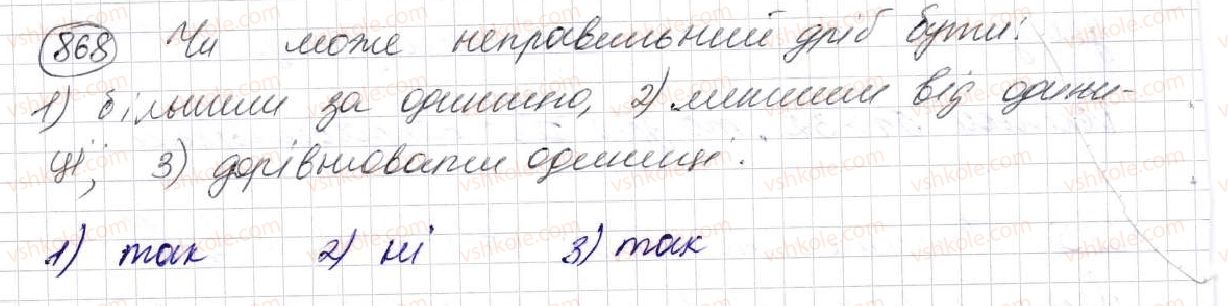 868 Чи може неправильний дріб бути:
1) більшим за одиницю, 2) меншим від одини-
ці, 3) дорівнювати одиниці.
1) так 2) ні 3) так